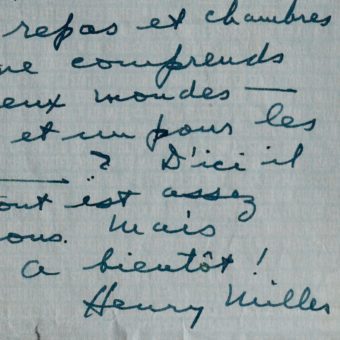 repas et chambres
ne comprends
eux mondes —
et un pour les
——? D'ici il
out est assez
ous. Mais
A bientôt!
Henry Miller